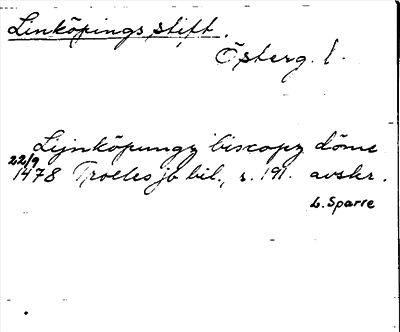 Linköpings stift.
Österg. l.
Lijnköpungz biscopz döme
22/9 1478 Troelles jb bil., s. 191. avskr.
L. Sparre